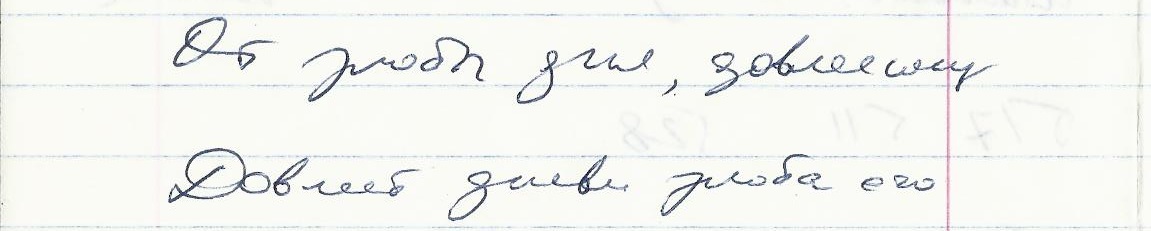 От злобы дня, довлеющу
Довлеет дневи злоба его